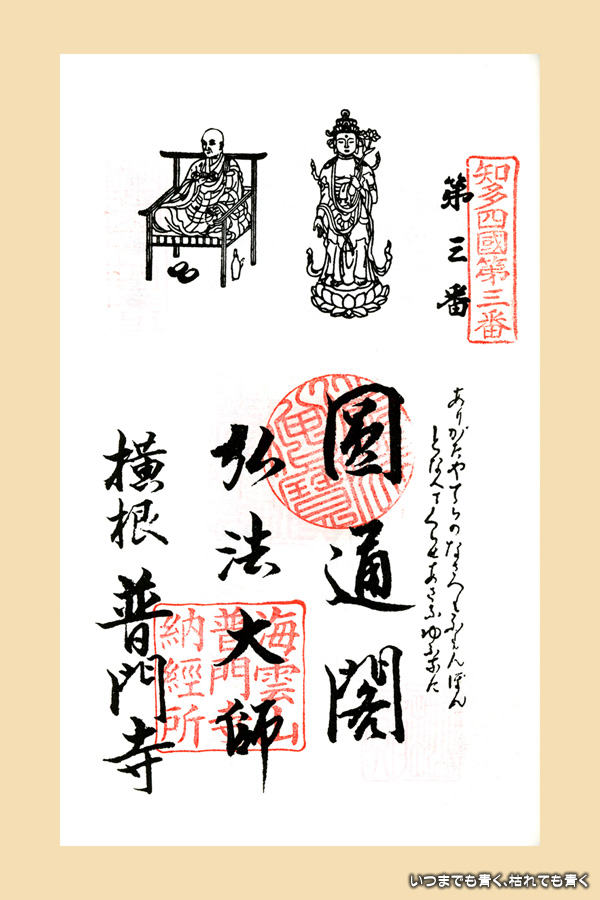 知多四國第三番
第三番
ありがたやてらのなさへもふもんぼん
となへてくらせあさなゆふなに
圓通閣
弘法大師
海雲山
普門寺
納經所
横根 普門寺
いつまでも青く、枯れても青く